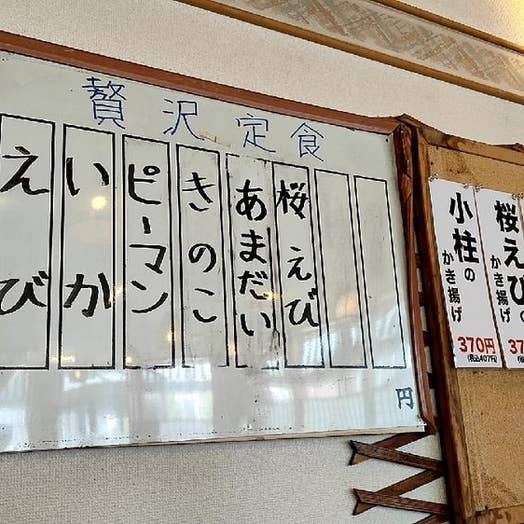 贅沢定食
桜えび
あまだい
きのこ
ピーマン
いか
えび
円
桜えび
かき揚げ
37
小柱の
かき揚げ
370円
(税込407円)